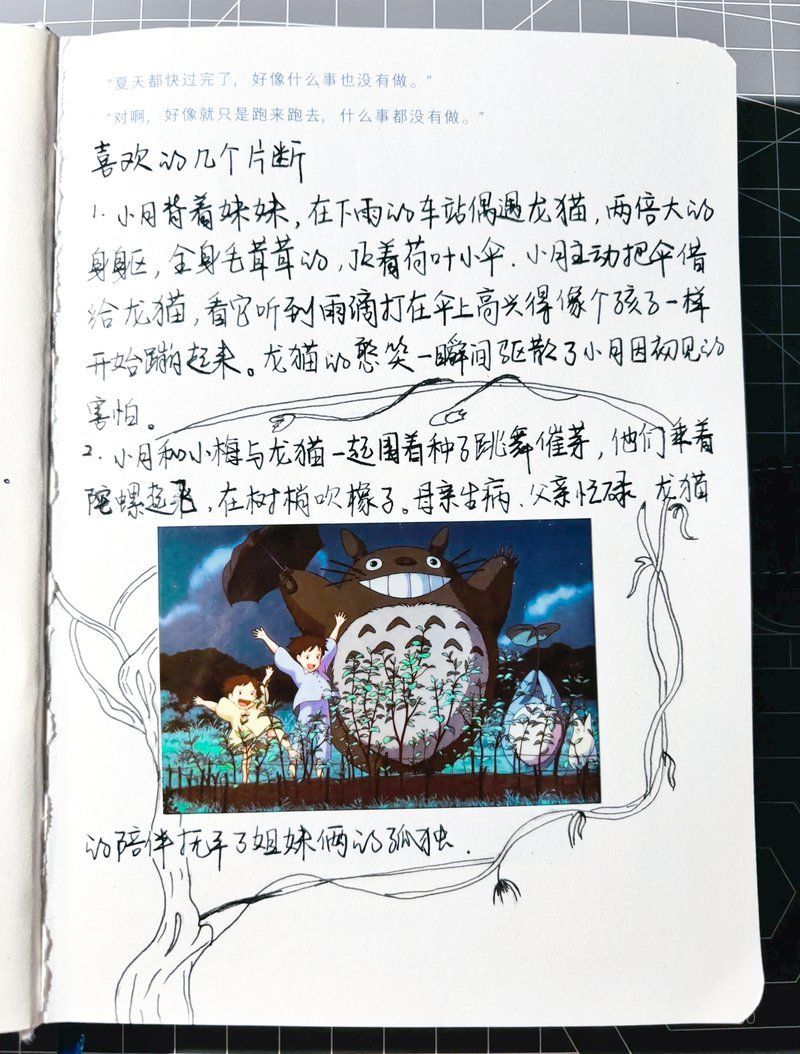 “夏天都快过完了，好像什么事也没有做。”
“对啊，好像就只是跑来跑去，什么事都没有做。”
喜欢的几个片断
1. 小月背着妹妹，在下雨的车站偶遇龙猫，两倍大的
身躯，全身毛茸茸的，顶着荷叶小伞．小月主动把伞借
给龙猫，看它听到雨滴打在伞上高兴得像个孩子一样
开始蹦起来。龙猫的憨笑一瞬间驱散了小月因初见的
害怕。
2. 小月和小梅与龙猫一起围着种子跳舞催芽，他们乘着
陀螺起飞，在树梢吹橡子。母亲生病、父亲忙碌，龙猫
的陪伴抚平了姐妹俩的孤独．